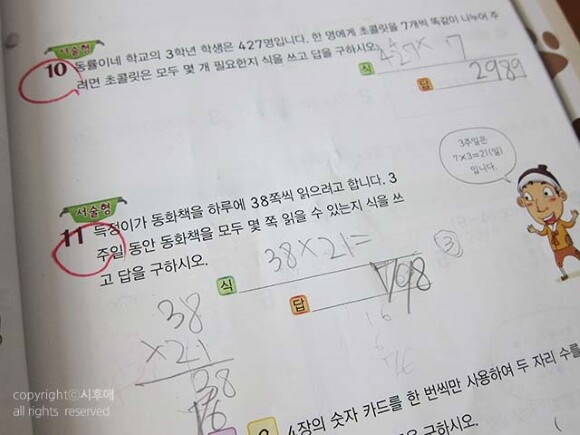 서술형
10 동률이네 학교의 3학년 학생은 427명입니다. 한 명에게 초콜릿을 7개씩 똑같이 나누어 주
려면 초콜릿은 모두 몇 개 필요한지 식을 쓰고 답을 구하시오.
식 427× 7
답 2989
3주일은
7×3=21(일)
입니다.
서술형
11 득정이가 동화책을 하루에 38쪽씩 읽으려고 합니다. 3
주일 동안 동화책을 모두 몇 쪽 읽을 수 있는지 식을 쓰
고 답을 구하시오.
식 38×21=
③
답 798
38
×21
38
copyrightⓒ시후애
all rights reserved
4장의 숫자 카드를 한 번씩만 사용하여 두 자리 수를
구하시오.